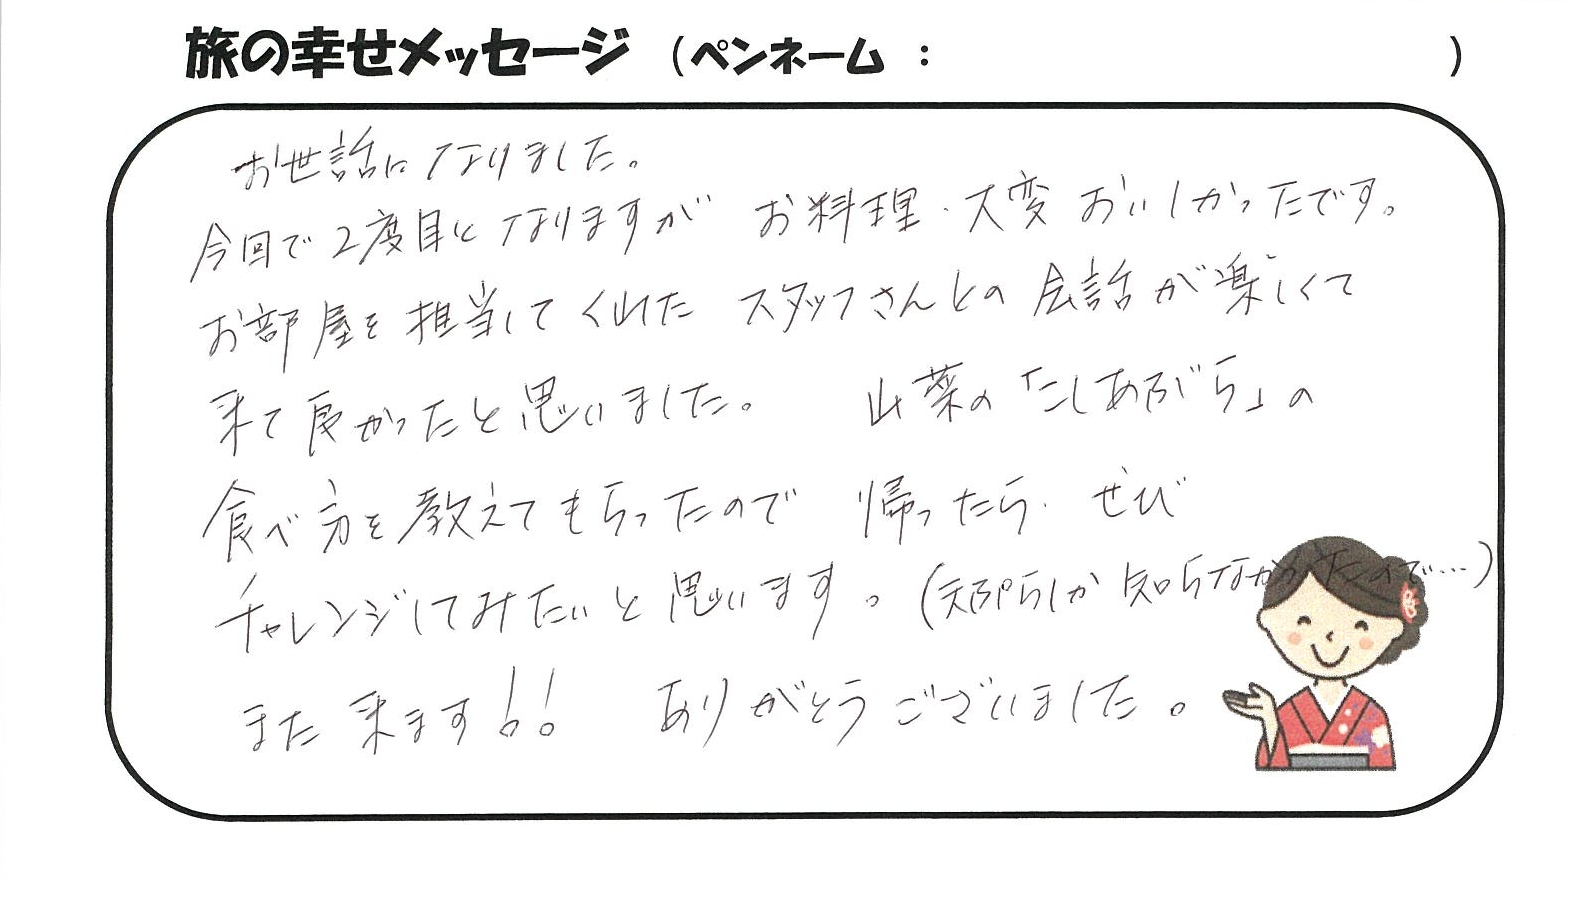 旅の幸せメッセージ (ペンネーム : )
お世話になりました。
今回で2度目となりますが お料理・大変 おいしかったです。
お部屋を担当してくれた スタッフさんとの 会話が楽しくて
来て良かったと思いました。 山菜の「こしあぶら」の
食べ方を教えてもらったので 帰ったら、ぜひ
チャレンジしてみたいと思います。(天ぷらしか知らなかったので…)
また来ます!! ありがとうございました。